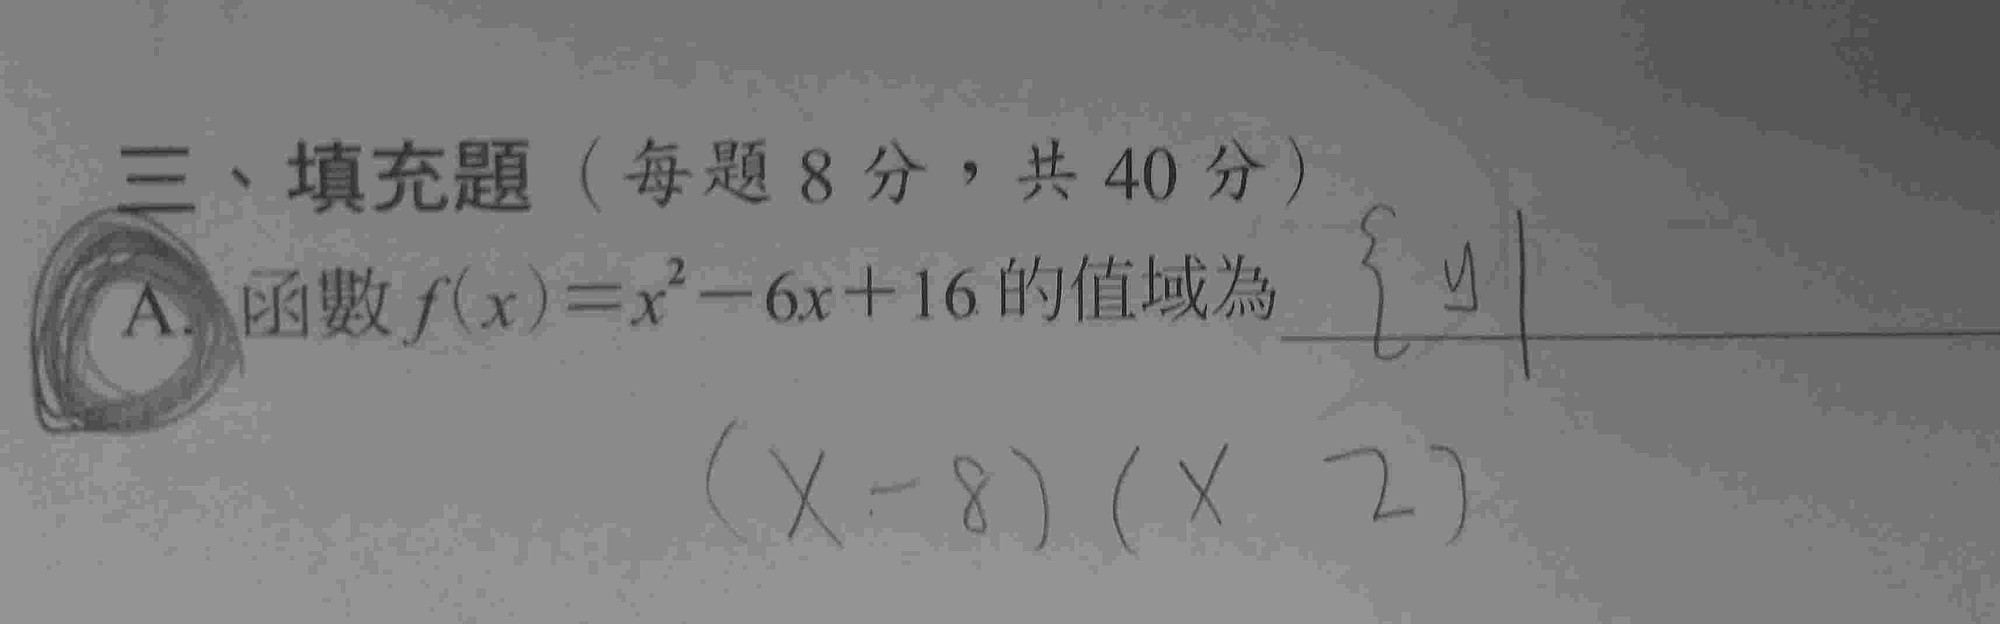 三、填充題（每題 8 分，共 40 分）
A. 函數 f(x)=x²－6x＋16 的值域為 { y |
(x - 8) (x 2)